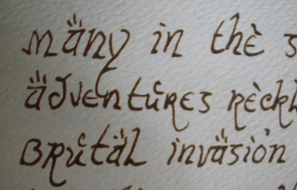 mäny in thè s
ädventúrès rèckl
Brútäl inväsiòn